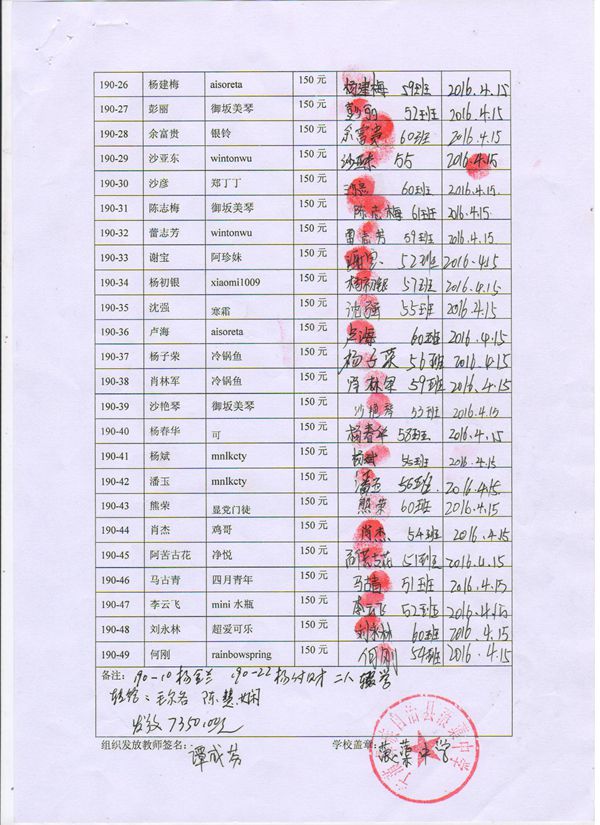 190-26 杨建梅 aisoreta 150元 杨建梅 59班 2016.4.15
190-27 彭丽 御坂美琴 150元 彭丽 52班 2016.4.15
190-28 余富贵 银铃 150元 余富贵 60班 2016.4.15
190-29 沙亚东 wintonwu 150元 沙亚东 55 2016.4.15
190-30 沙彦 郑丁丁 150元 沙彦 60班 2016.4.15
190-31 陈志梅 御坂美琴 150元 陈志梅 61班 2016.4.15
190-32 蕾志芳 wintonwu 150元 雷志芳 59班 2016.4.15
190-33 谢宝 阿珍妹 150元 谢宝 52班 2016.4.15
190-34 杨初银 xiaomi1009 150元 杨初银 57班 2016.4.15
190-35 沈强 寒霜 150元 沈强 55班 2016.4.15
190-36 卢海 aisoreta 150元 卢海 60班 2016.4.15
190-37 杨子荣 冷锅鱼 150元 杨子荣 56班 2016.4.15
190-38 肖林军 冷锅鱼 150元 肖林军 59班 2016.4.15
190-39 沙艳琴 御坂美琴 150元 沙艳琴 53班 2016.4.15
190-40 杨春华 可 150元 杨春华 58班 2016.4.15
190-41 杨斌 mnlkcty 150元 杨斌 56班 2016.4.15
190-42 潘玉 mnlkcty 150元 潘玉 56班 2016.4.15
190-43 熊荣 显党门徒 150元 熊荣 60班 2016.4.15
190-44 肖杰 鸡哥 150元 肖杰 54班 2016.4.15
190-45 阿苦古花 净悦 150元 51班 2016.4.15
190-46 马古青 四月青年 150元 马古青 51班 2016.4.15
190-47 李云飞 mini水瓶 150元 李云飞 52班 2016.4.15
190-48 刘永林 超爱可乐 150元 刘永林 60班 2016.4.15
190-49 何刚 rainbowspring 150元 何刚 54班 2016.4.15
备注: 190-10 杨 190-22 杨 二人 辍学
转给: 毛尔各 陈慧娴
发放7350.00元
组织发放教师签名: 谭成芬 学校盖章: 中学